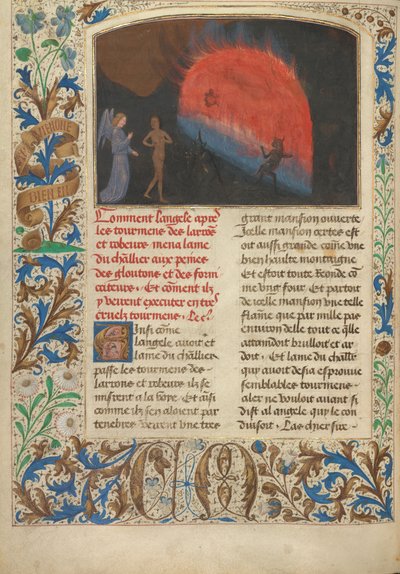 Comment langele apres
les tourmens des larrons
et robeurs mena lame
du chllier aux peines
des gloutons et des forni
cateurs. Et coment ilz
y veirent executer entre
cruelz tourmens.
Ainsi come
langele auoit et
lame du chllier
passe les tourmens des
larrons et robeurs ilz se
mistrent a la voye. Et ainsi
comme ilz sen aloient par
tenebres veirent vne tres
grant mansion ouuerte
Icelle mansion certes est
oit aussi grande come vne
bien haulte montaigne
Et estoit toute Ronde co
me vng four. Et partoit
de icelle mansion vne telle
flame que par mille pas
enuiron delle tout ce quelle
attaindoit brulloit et ar
doit. Et lame du chllr
qui auoit desia esprouue
semblables tourmens
aler ne vouloit auant si
dist al angele qui le con
duisoit.